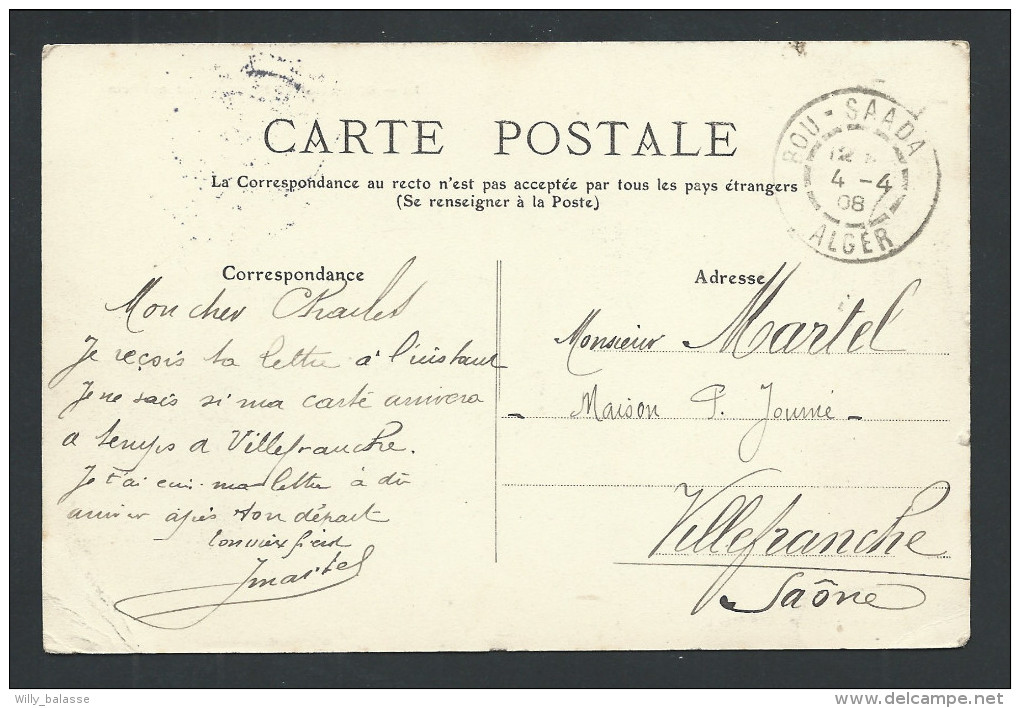 CARTE POSTALE
La Correspondance au recto n'est pas acceptée par tous les pays étrangers
(Se renseigner à la Poste)
BOU-SAADA
4 -4
08
ALGER
Correspondance
Mon cher Charles
Je reçois ta lettre à l'instant
Je ne sais si ma carte arrivera
a temps a Villefranche.
Je t'ai ma lettre à dû
arriver après ton départ
Ton vieux
Martel
Adresse
Monsieur Martel
Maison P. Journé -
Villefranche
Saône
Willy_balasse
delcampe.net